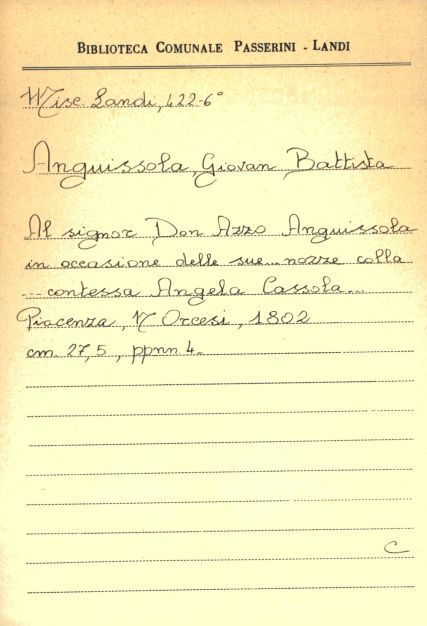 BIBLIOTECA COMUNALE PASSERINI - LANDI
Misc. Landi, 422-6°
Anguissola, Giovan Battista
Al signor Don Azzo Anguissola
in occasione delle sue... nozze colla
...contessa Angela Cassola...
Piacenza, N Orcesi, 1802
cm. 27,5, ppnn 4.
C